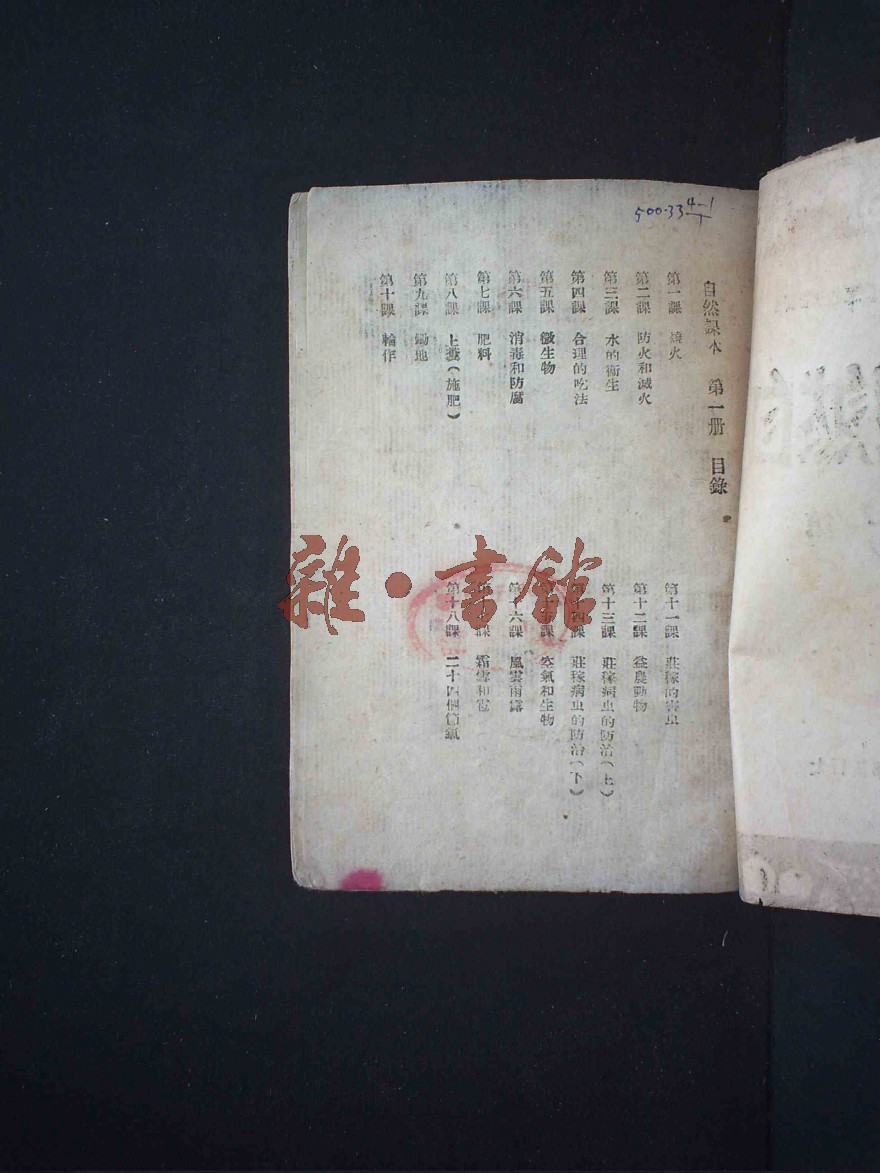 500·33 4-1
自然課本 第一册 目錄
第一課 燒火
第二課 防火和滅火
第三課 水的衛生
第四課 合理的吃法
第五課 微生物
第六課 消毒和防腐
第七課 肥料
第八課 上糞(施肥)
第九課 鋤地
第十課 輪作
第十一課 莊稼的害虫
第十二課 益農動物
第十三課 莊稼病虫的防治(上)
第十四課 莊稼病虫的防治(下)
第十五課 空氣和生物
第十六課 風雲雨露
課 霜雪和雹
第十八課 二十四個節氣
雜·書館